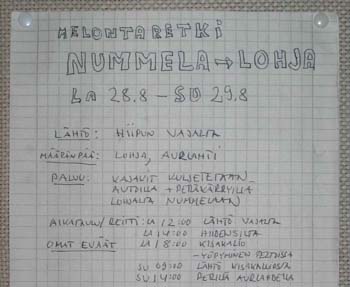 MELONTARETKI
NUMMELA → LOHJA
LA 28.8 – SU 29.8
LÄHTÖ: HIIPUN VAJALTA
MÄÄRÄNPÄÄ: LOHJA, AURLAHTI
PALUU: KAJAKIT KULJETETAAN
AUTOILLA + PERÄKÄRRYILLÄ
LOHJALTA NUMMELAAN
AIKATAULU/REITTI: LA 12:00 LÄHTÖ VAJALTA
LA 14:00 HIIDENSILTA
OMAT EVÄÄT LA 18:00 KISAKALLIO
- YÖPYMINEN TELTOISSA
SU 09:00 LÄHTÖ KISAKALLIOSTA
SU 14:00 PERILLÄ AURLAHDELLA